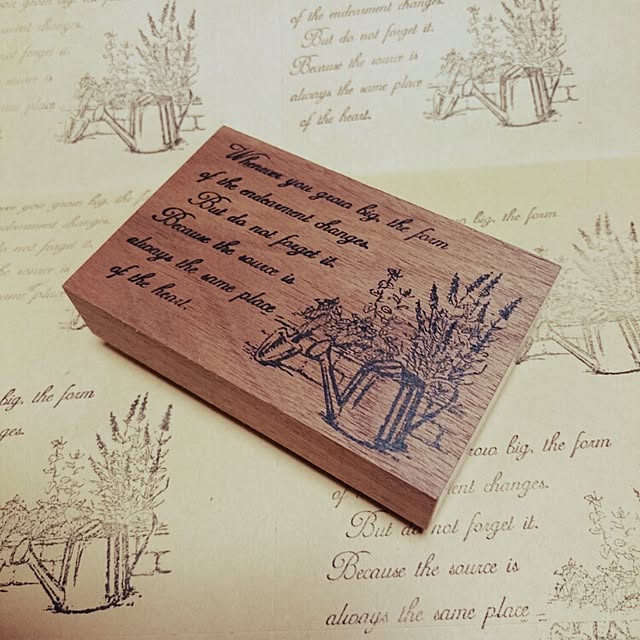 you grow big, the form
of the endearment changes.
not forget it.
source is
place
of the endearment changes.
But do not forget it.
Because the source is
always the same place
of the heart.
Whenever you grown big, the form
of the endearment changes.
But do not forget it.
Because the source is
always the same place
of the heart.
big, the form
big, the form
ges.
row big, the form
of
ent changes.
But do not forget it.
Because the source is
always the same place